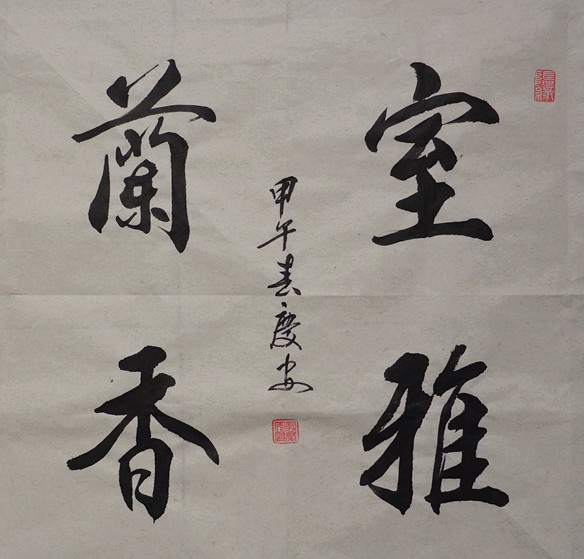 室雅
蘭香
甲午春慶安